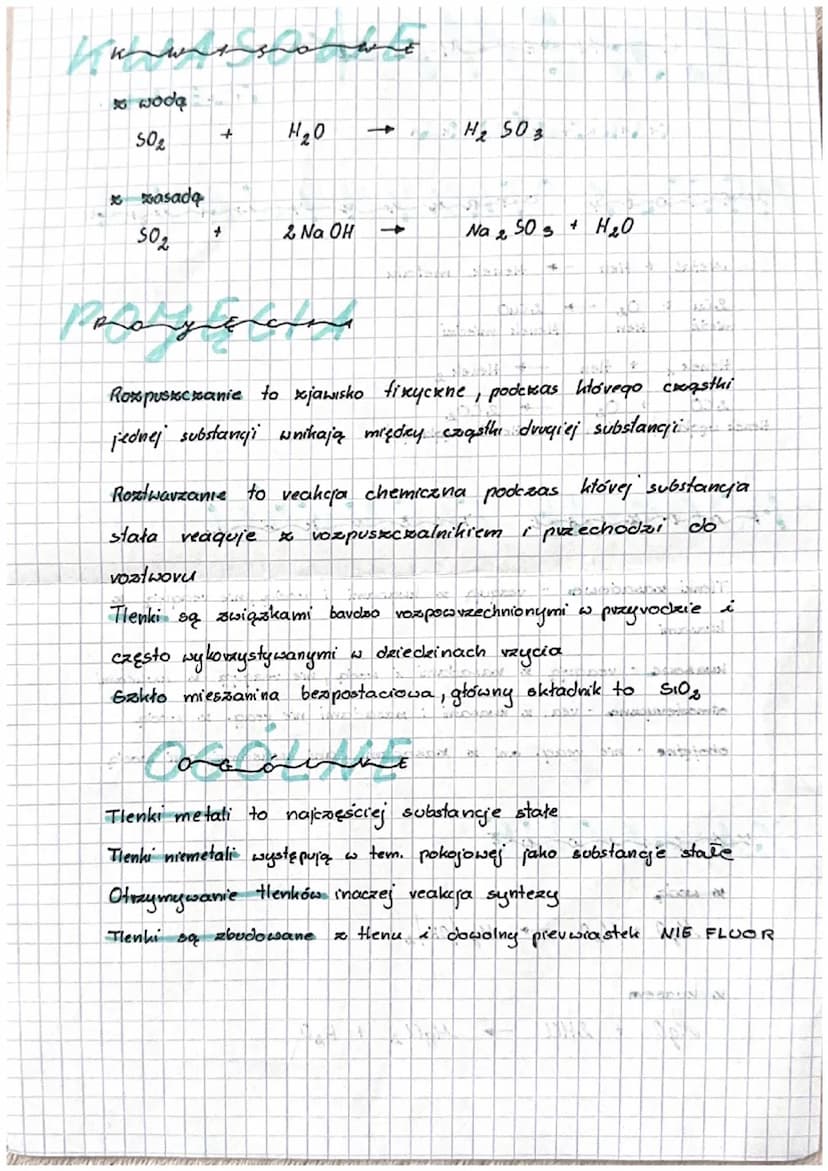 KWASOWE
z wodą
SO2 + H2O → H2 SO3
z zasadą
SO2 + 2 NaOH → Na2 SO3 + H2O
POJĘCIA
Rozpuszczanie to zjawisko fizyczne, podczas którego cząstki
jednej substancji wnikają między cząstki drugiej substancji
Roztwarzanie to reakcja chemiczna podczas której substancja
stała reaguje z rozpuszczalnikiem i przechodzi do
roztworu
Tlenki są związkami bardzo rozpowrzechnionymi w przyrodzie i
często wykorzystywanymi w dziedzinach rzycia
Szkło mieszanina bezpostaciowa, główny składnik to SiO2
OGÓLNE
Tlenki metali to najczęściej substancje stałe
Tlenki niemetali występują w tem. pokojowej jako substancje stałe
Otrzymywanie tlenków inaczej reakcja syntezy
Tlenki są zbudowane z tlenu i dowolny pierwiastek NIE FLUOR